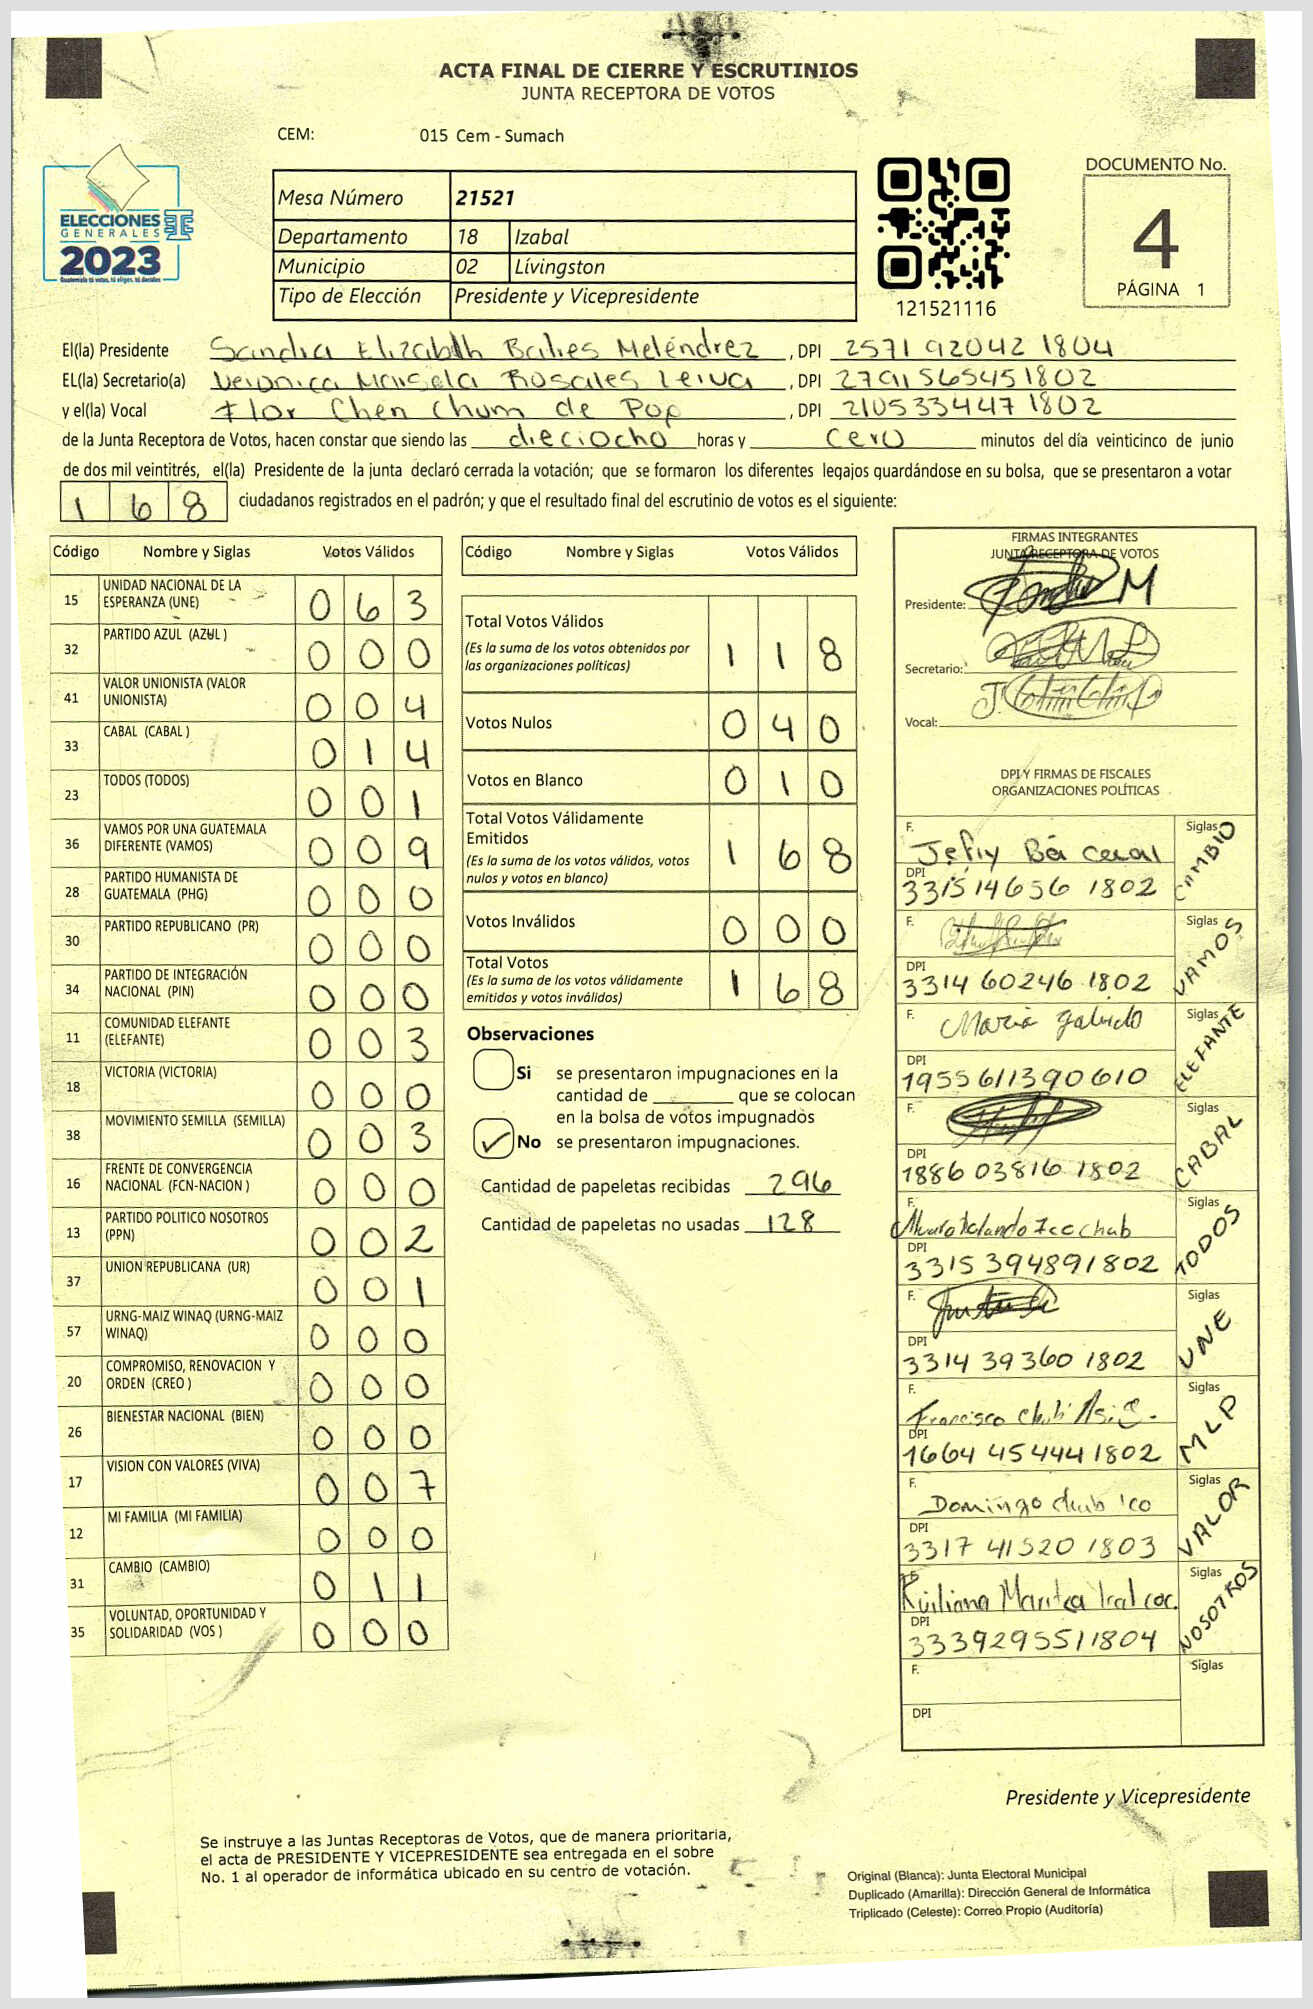 ACTA FINAL DE CIERRE Y ESCRUTINIOS
JUNTA RECEPTORA DE VOTOS
CEM: 015 Cem - Sumach
ELECCIONES
GENERALES
2023
Guatemala tú votas, tú eliges, tú decides
Mesa Número 21521
Departamento 18 Izabal
Municipio 02 Lívingston
Tipo de Elección Presidente y Vicepresidente
121521116
DOCUMENTO No.
4
PÁGINA 1
El(la) Presidente Sandra Elizabeth Meléndrez, DPI 2571 92042 1804
EL(la) Secretario(a) Veronica Rosales Leiva, DPI 2791565451802
y el(la) Vocal Flor Chen Chum de Pop, DPI 2105334471802
de la Junta Receptora de Votos, hacen constar que siendo las dieciocho horas y cero minutos del día veinticinco de junio
de dos mil veintitrés, el(la) Presidente de la junta declaró cerrada la votación; que se formaron los diferentes legajos guardándose en su bolsa, que se presentaron a votar
168 ciudadanos registrados en el padrón; y que el resultado final del escrutinio de votos es el siguiente:
Código Nombre y Siglas Votos Válidos
15 UNIDAD NACIONAL DE LA ESPERANZA (UNE) 063
32 PARTIDO AZUL (AZUL ) 000
41 VALOR UNIONISTA (VALOR UNIONISTA) 004
33 CABAL (CABAL ) 014
23 TODOS (TODOS) 001
36 VAMOS POR UNA GUATEMALA DIFERENTE (VAMOS) 009
28 PARTIDO HUMANISTA DE GUATEMALA (PHG) 000
30 PARTIDO REPUBLICANO (PR) 000
34 PARTIDO DE INTEGRACIÓN NACIONAL (PIN) 000
11 COMUNIDAD ELEFANTE (ELEFANTE) 003
18 VICTORIA (VICTORIA) 000
38 MOVIMIENTO SEMILLA (SEMILLA) 003
16 FRENTE DE CONVERGENCIA NACIONAL (FCN-NACION ) 000
13 PARTIDO POLITICO NOSOTROS (PPN) 002
37 UNION REPUBLICANA (UR) 001
57 URNG-MAIZ WINAQ (URNG-MAIZ WINAQ) 000
20 COMPROMISO, RENOVACION Y ORDEN (CREO ) 000
26 BIENESTAR NACIONAL (BIEN) 000
17 VISION CON VALORES (VIVA) 007
12 MI FAMILIA (MI FAMILIA) 000
31 CAMBIO (CAMBIO) 011
35 VOLUNTAD, OPORTUNIDAD Y SOLIDARIDAD (VOS ) 000
Código Nombre y Siglas Votos Válidos
Total Votos Válidos 118
(Es la suma de los votos obtenidos por
las organizaciones políticas)
Votos Nulos 040
Votos en Blanco 010
Total Votos Válidamente
Emitidos 168
(Es la suma de los votos válidos, votos
nulos y votos en blanco)
Votos Inválidos 000
Total Votos 168
(Es la suma de los votos válidamente
emitidos y votos inválidos)
Observaciones
Si se presentaron impugnaciones en la
cantidad de ________ que se colocan
en la bolsa de votos impugnados
No se presentaron impugnaciones.
Cantidad de papeletas recibidas 296
Cantidad de papeletas no usadas 128
FIRMAS INTEGRANTES
JUNTA RECEPTORA DE VOTOS
Presidente:
Secretario:
Vocal:
DPI Y FIRMAS DE FISCALES
ORGANIZACIONES POLÍTICAS
F. Siglas CAMBIO
DPI 331514656 1802
F. Siglas VAMOS
DPI 3314 60246 1802
F. Maria Siglas ELEFANTE
DPI 1955611390610
F. Siglas CABAL
DPI 1886 03816 1802
F. Siglas TODOS
DPI 3315394891802
F. Siglas UNE
DPI 3314 39360 1802
F. Francisco Siglas MLP
DPI 1664 45444 1802
F. Domingo Chub Ico Siglas VALOR
DPI 3317 41520 1803
F. Maritza Siglas NOSOTROS
DPI 3339295511804
F. Siglas
DPI
Presidente y Vicepresidente
Se instruye a las Juntas Receptoras de Votos, que de manera prioritaria,
el acta de PRESIDENTE Y VICEPRESIDENTE sea entregada en el sobre
No. 1 al operador de informática ubicado en su centro de votación.
Original (Blanca): Junta Electoral Municipal
Duplicado (Amarilla): Dirección General de Informática
Triplicado (Celeste): Correo Propio (Auditoría)